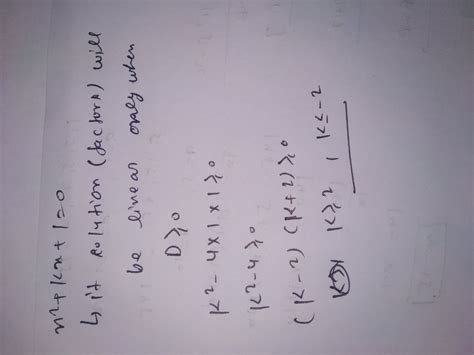 x²+kx+1=0
↳ it solution (factors) will
be linear only when
D≥0
k²-4×1×1≥0
k²-4≥0
(k-2)(k+2)≥0
k≥2, k≤-2